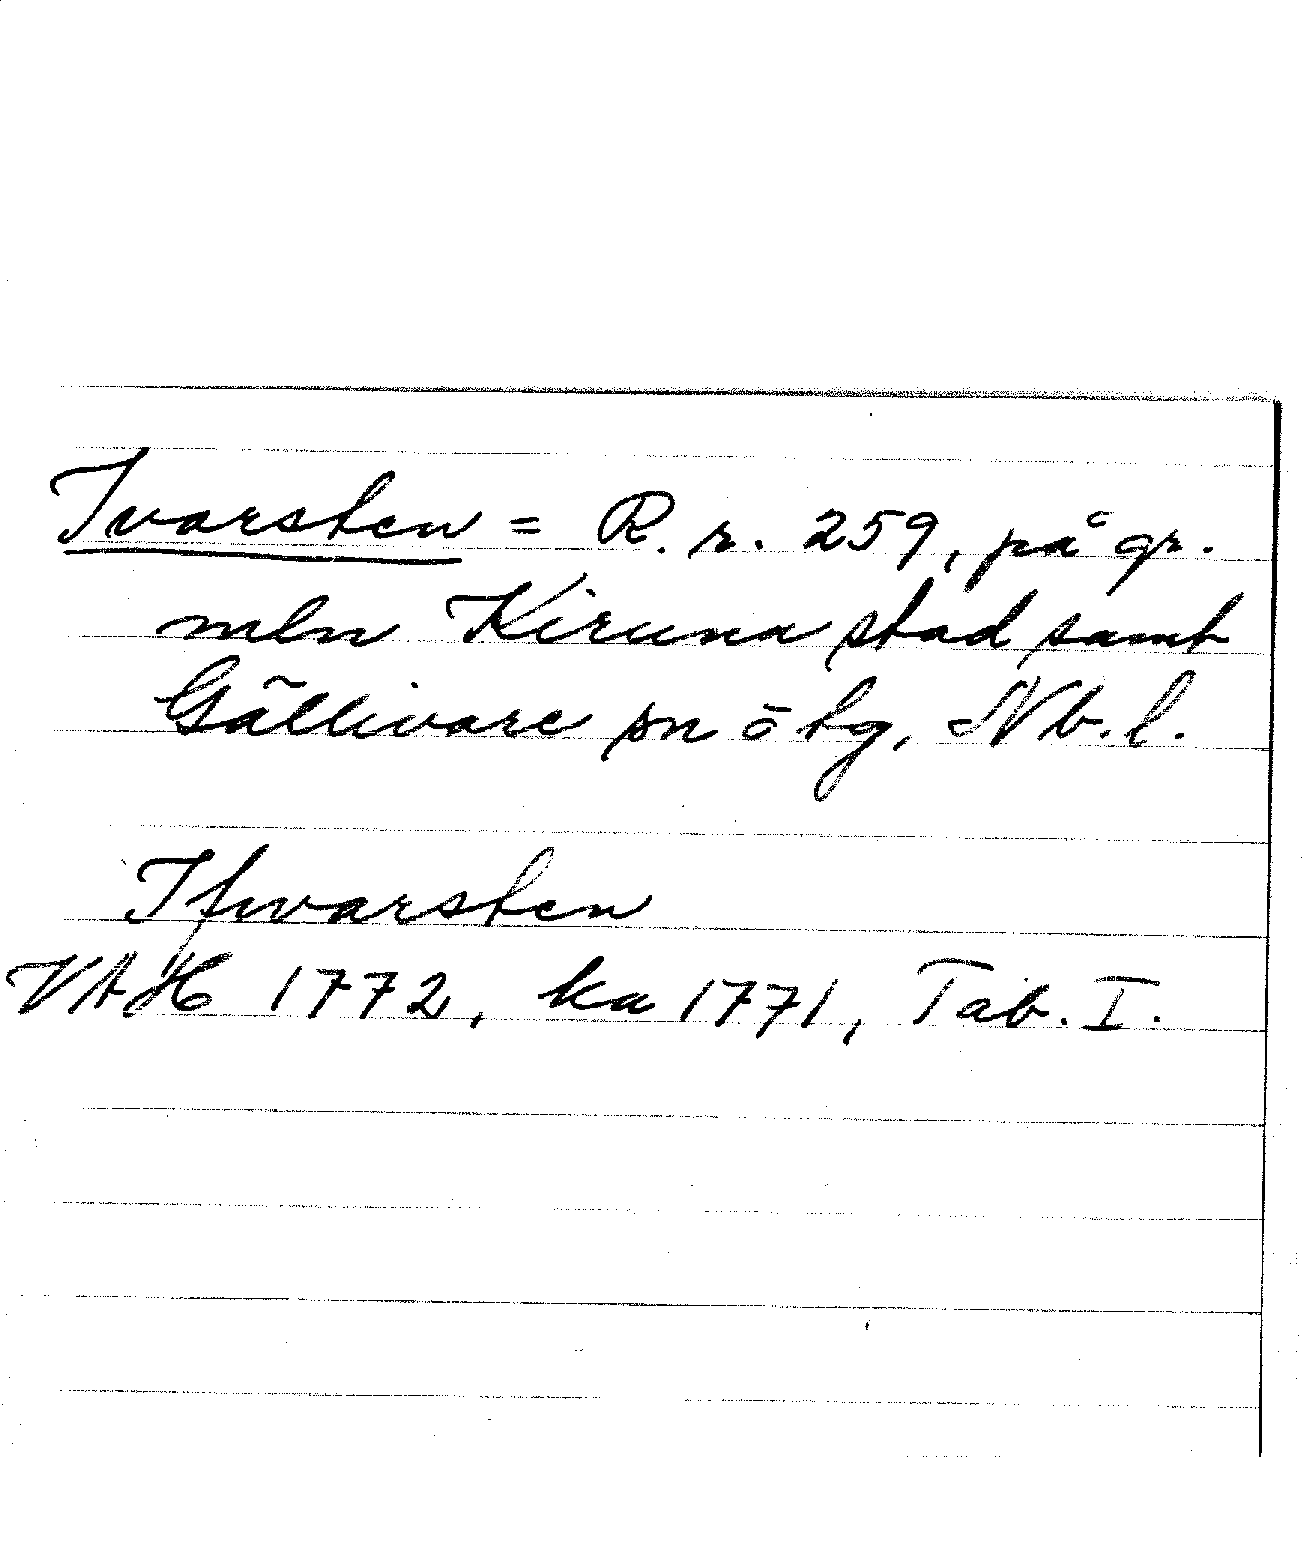 Ivarsten = R. r. 259, på gr.
mln Kiruna stad samt
Gällivare sn o tg, Nb. l.
Ifwarsten
VAH 1772, ka 1771, Tab. I.